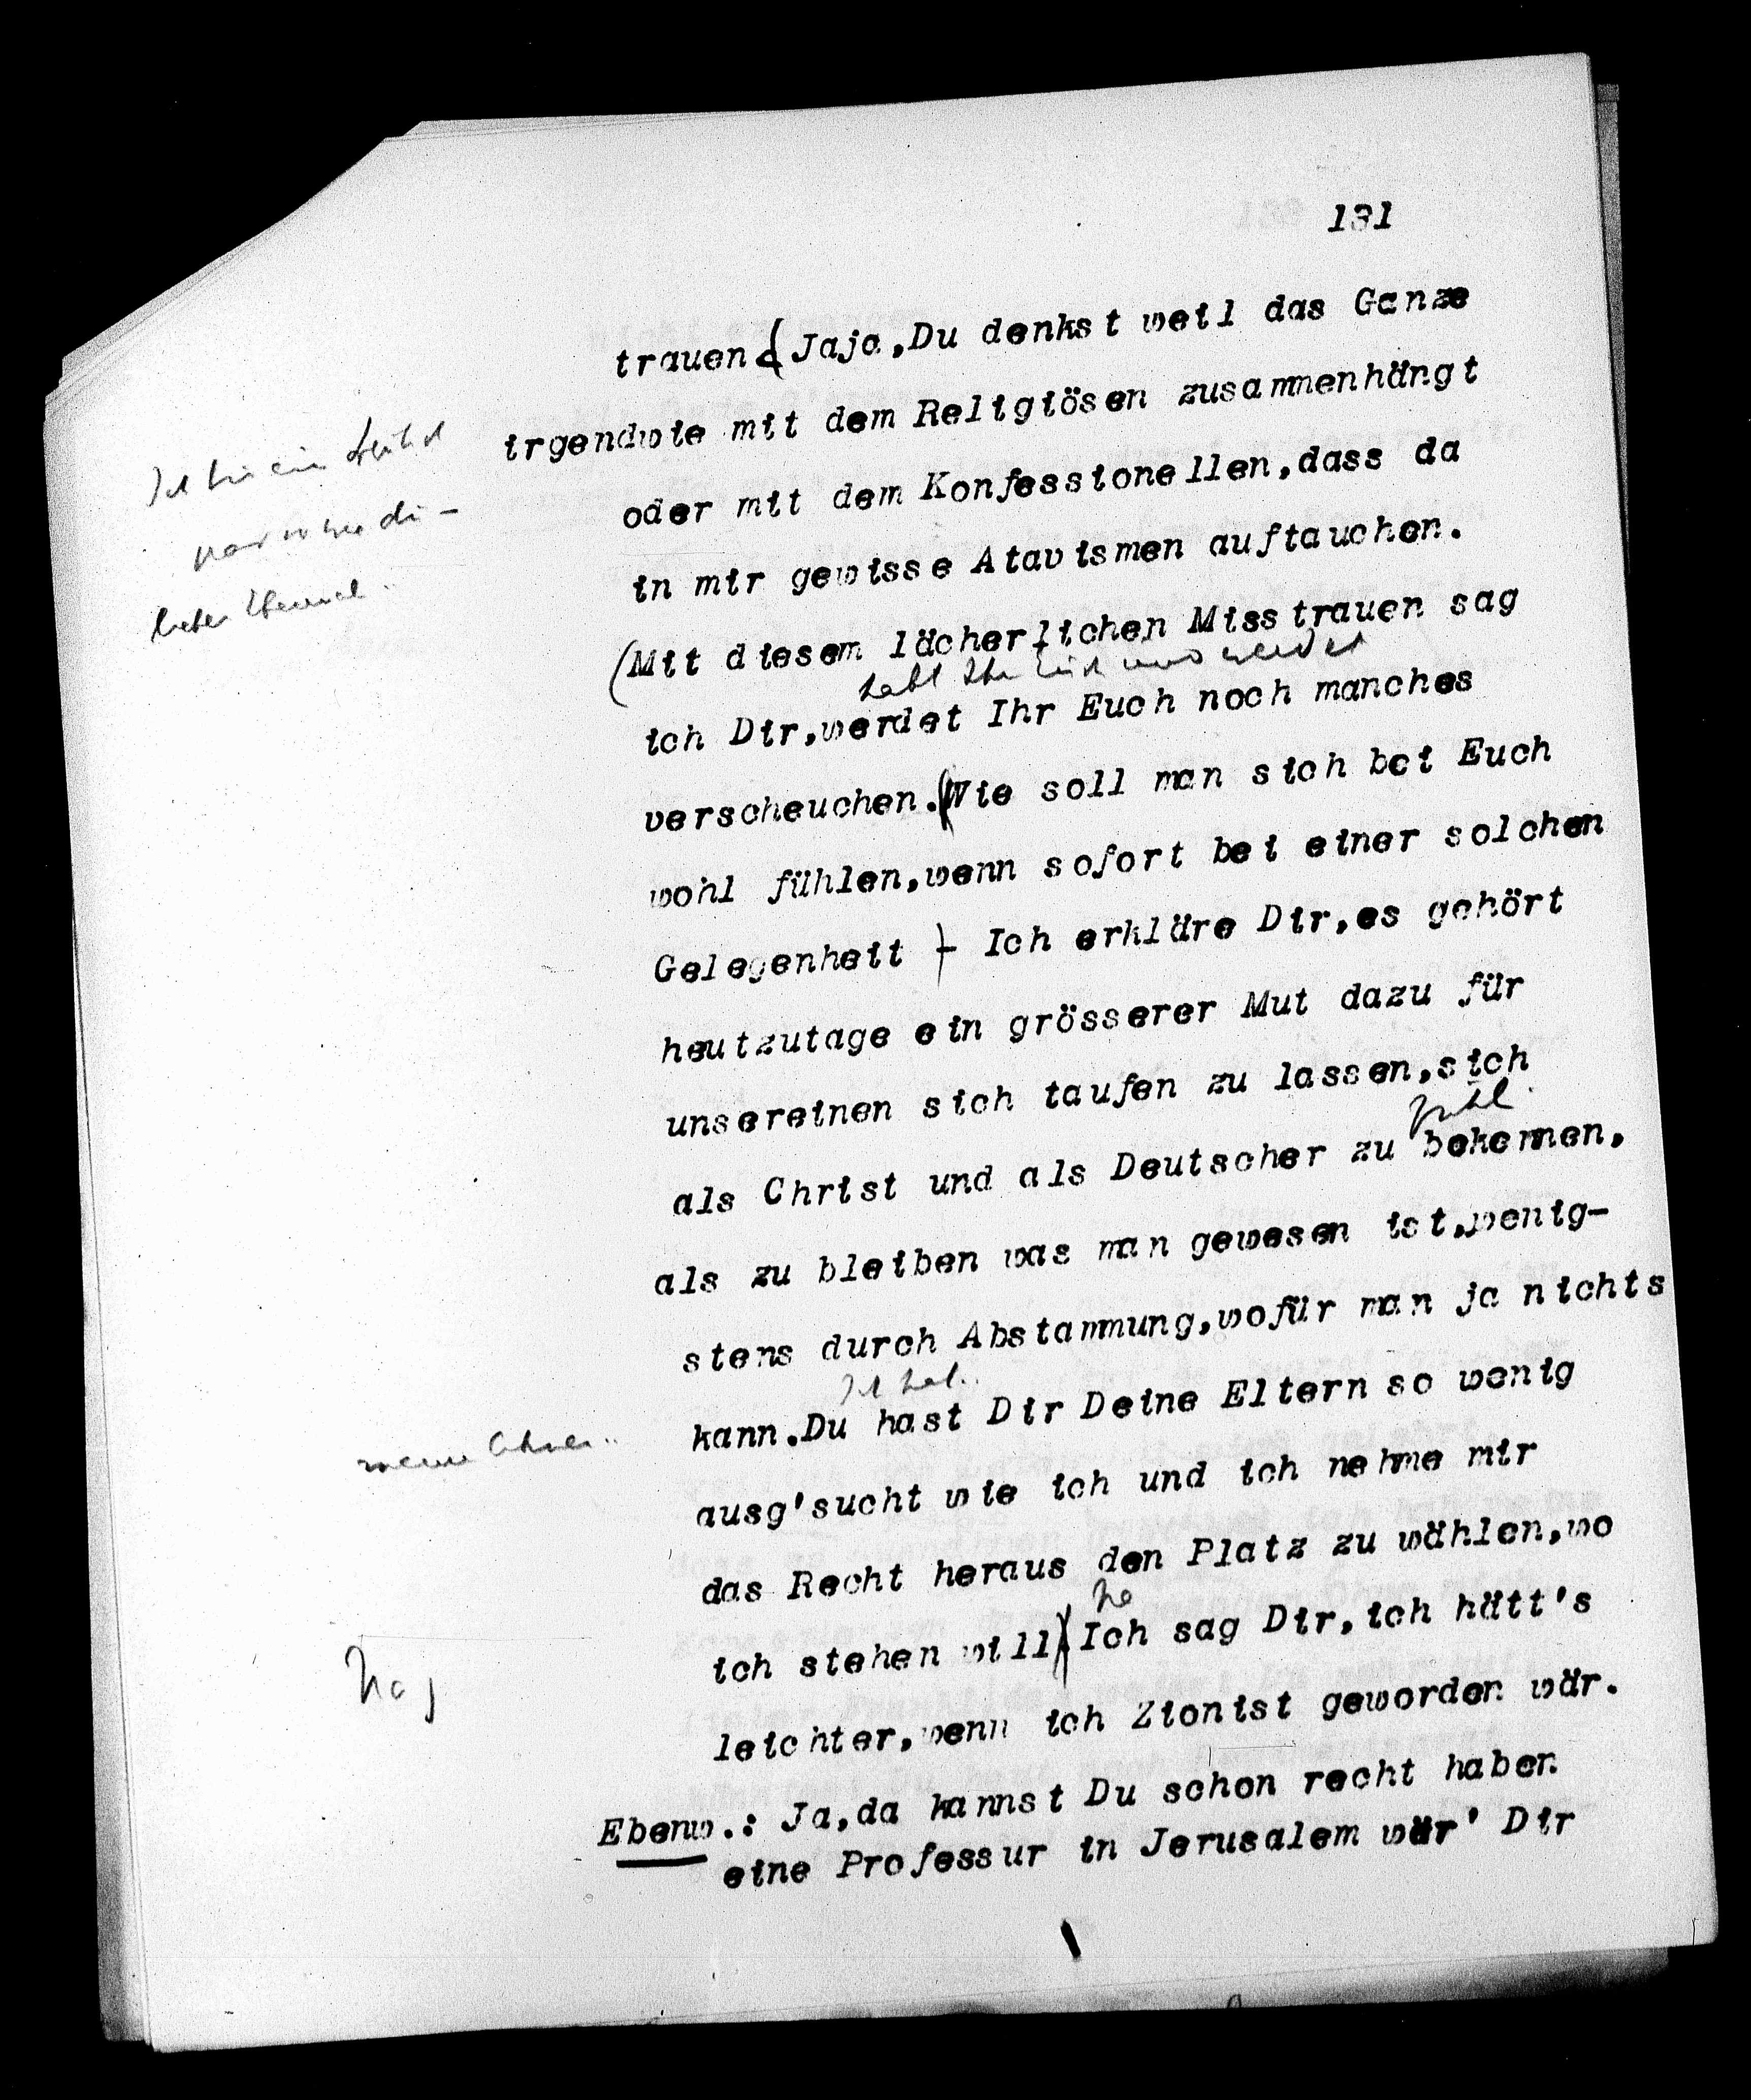 131
trauen. (Jaja, Du denkst weil das Ganze
irgendwie mit dem Religiösen zusammenhängt
oder mit dem Konfessionellen, dass da
in mir gewisse Atavismen auftauchen.
(Mit diesem lächerlichen Misstrauen sag
habt Ihr Euch und werdet
ich Dir, werdet Ihr Euch noch manches
verscheuchen. (Wie soll man sich bei Euch
wohl fühlen, wenn sofort bei einer solchen
Gelegenheit ) - Ich erkläre Dir, es gehört
heutzutage ein grösserer Mut dazu für
unsereinen sich taufen zu lassen, sich
als Christ und als Deutscher zu bekennen,
als zu bleiben was man gewesen ist, wenig-
stens durch Abstammung, wofür man ja nichts
Ich hab..
kann. Du hast Dir Deine Eltern so wenig
meine Ahnen..
ausg'sucht wie ich und ich nehme mir
das Recht heraus den Platz zu wählen, wo
ich stehen will) Ich sag Dir, ich hätt's
leichter, wenn ich Zionist geworden wär.
Ebenw.: Ja, da kannst Du schon recht haben
eine Professur in Jerusalem wär' Dir